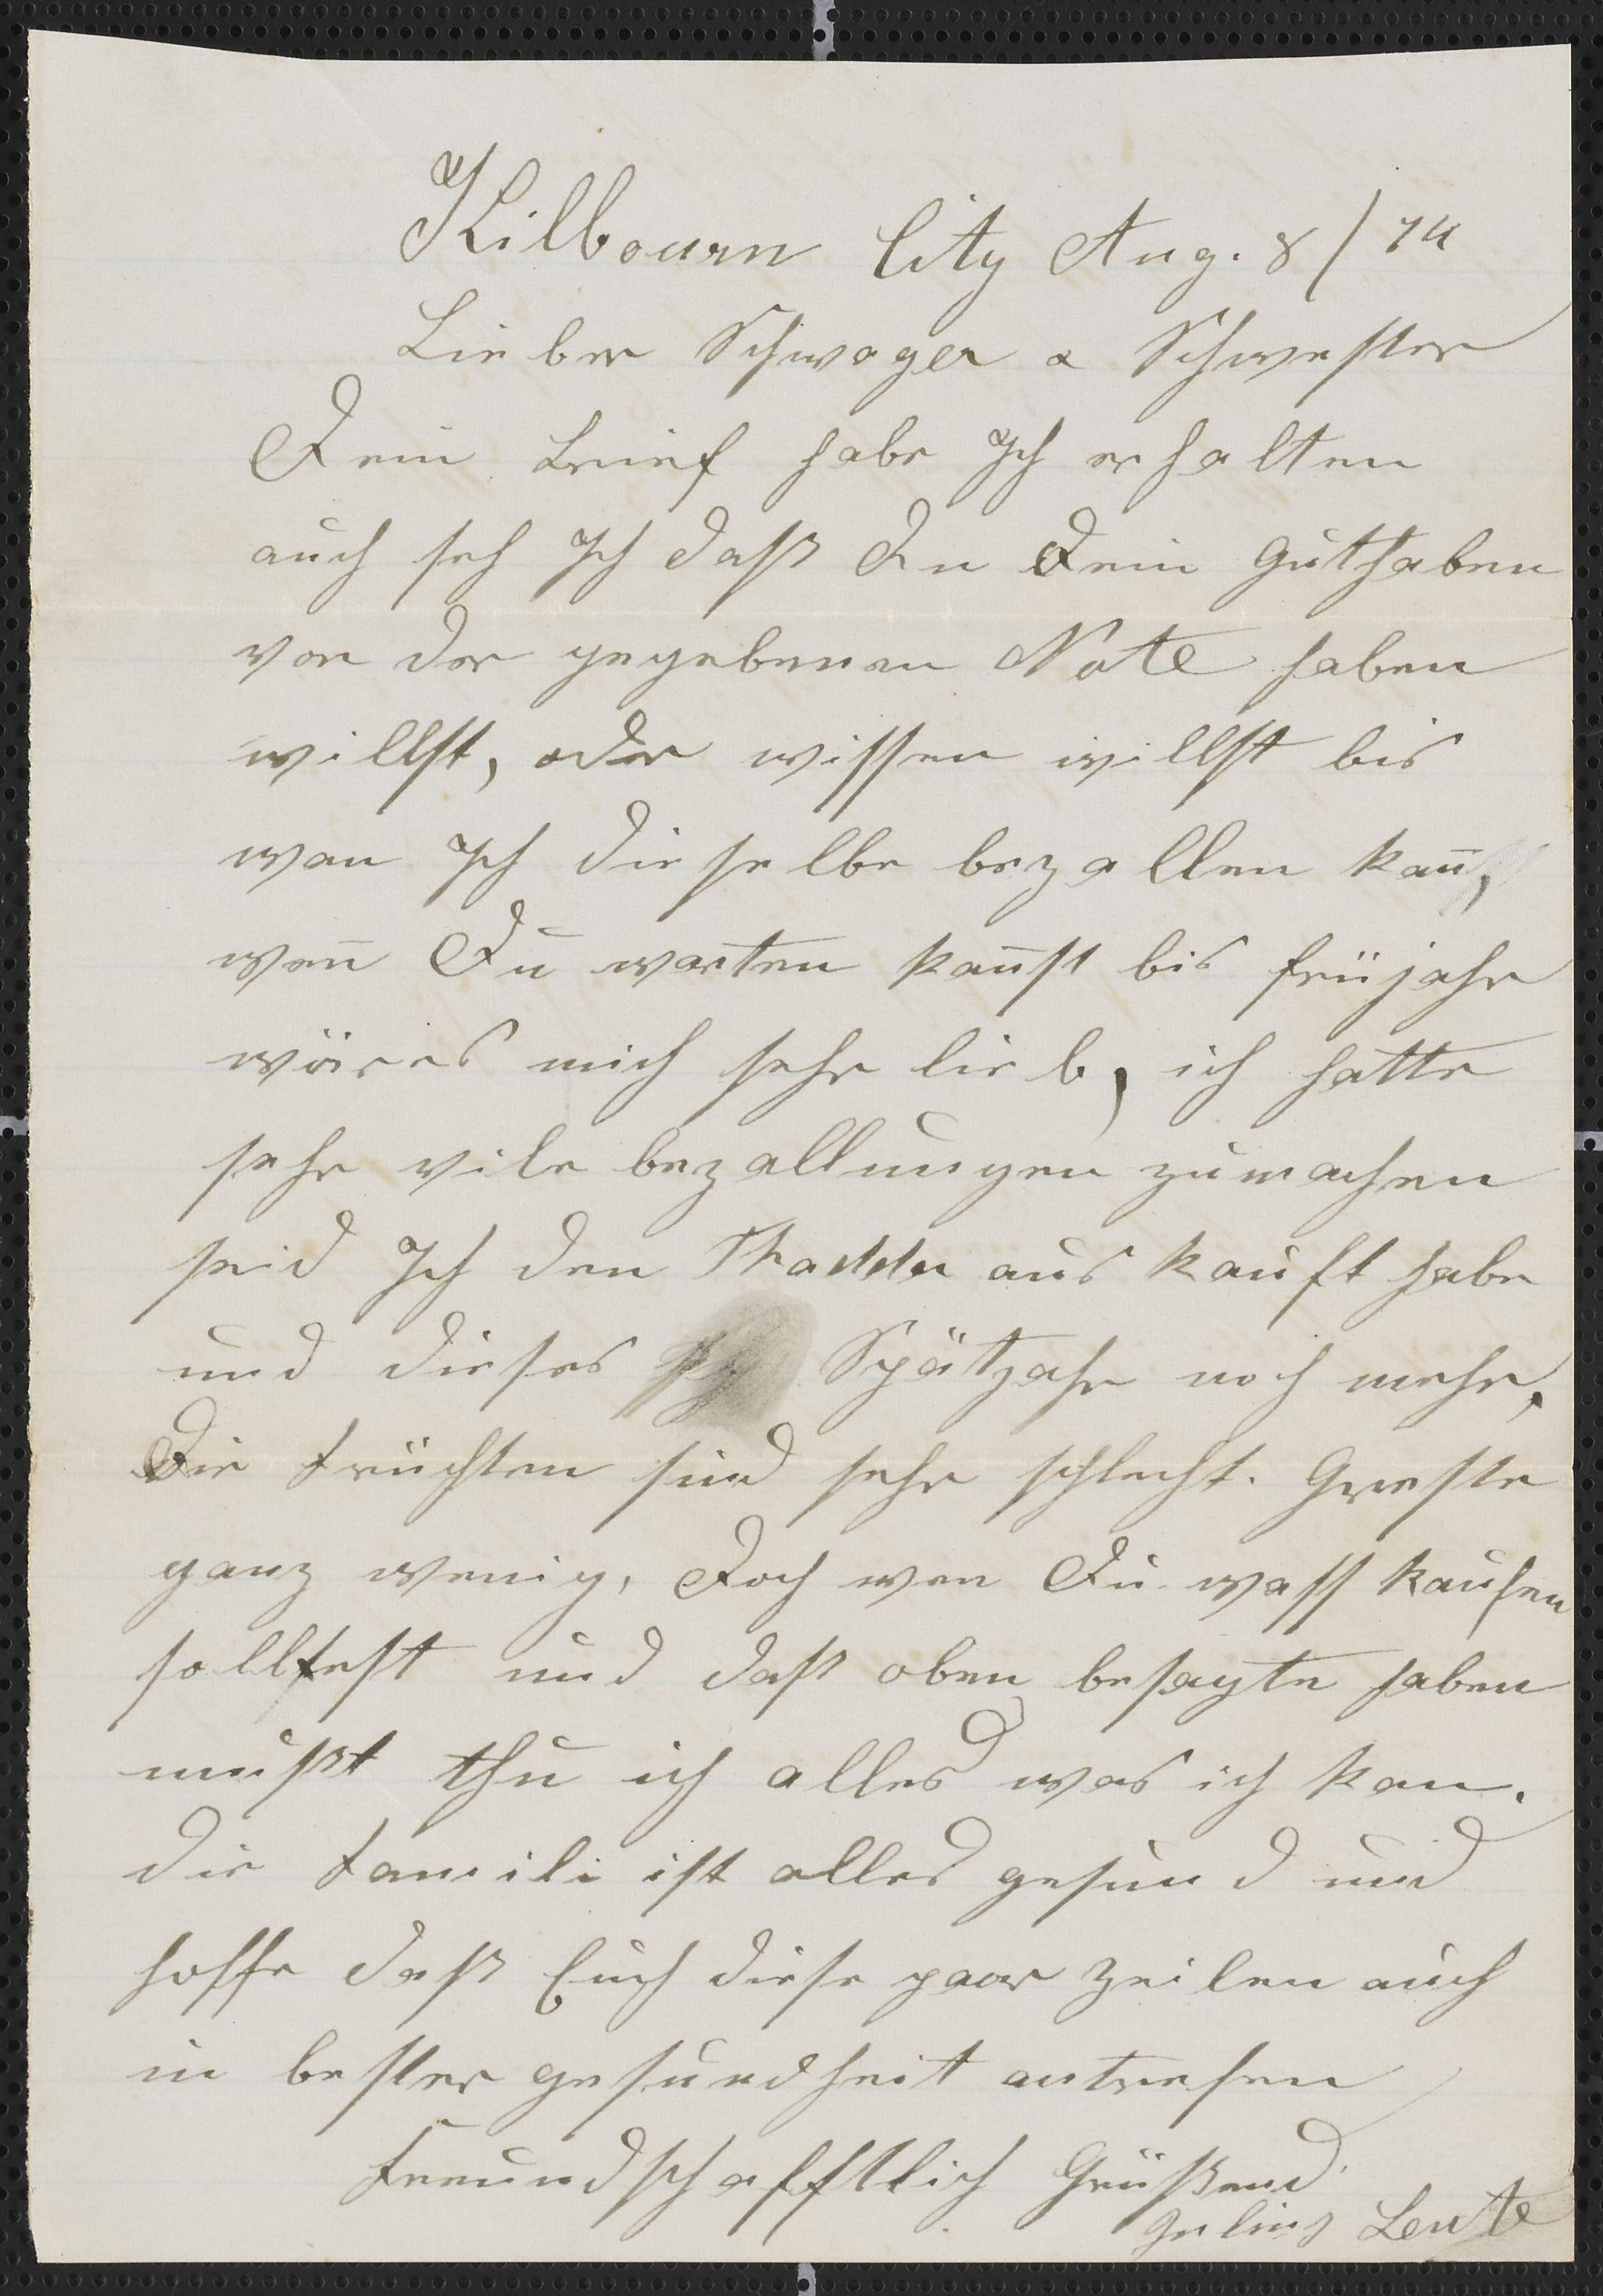 Kilbourn City Aug. 8/74
Lieber Schwager & Schwester
Dein Brief habe Ich erhalten
auch seh Ich daß Du Dein Guthaben
von der gegebenen Note haben
willst, oder wissen willst bis
wan Ich dieselbe bezallen kan̄,
wen̄ Du warten kan̄st bis früjahr
wäre es mich sehr lieb, ich hatte
sehr viele bezallungen zu machen
seid Ich den Thaddu aus kauft habe
und dieses Spätjahr noch mehr,
Die Früchten sind sehr schlecht. Gerste
ganz wenig, Doch wen Du wass kaufen
solltest und daß oben besagte haben
mußt thu ich alles was ich kan.
die Famili ist alles gesund und
hoffe daß Euch diese paar Zeilen auch
in bester gesundheit antrefen
Freundschafftlich Grüßend
Julius Leute